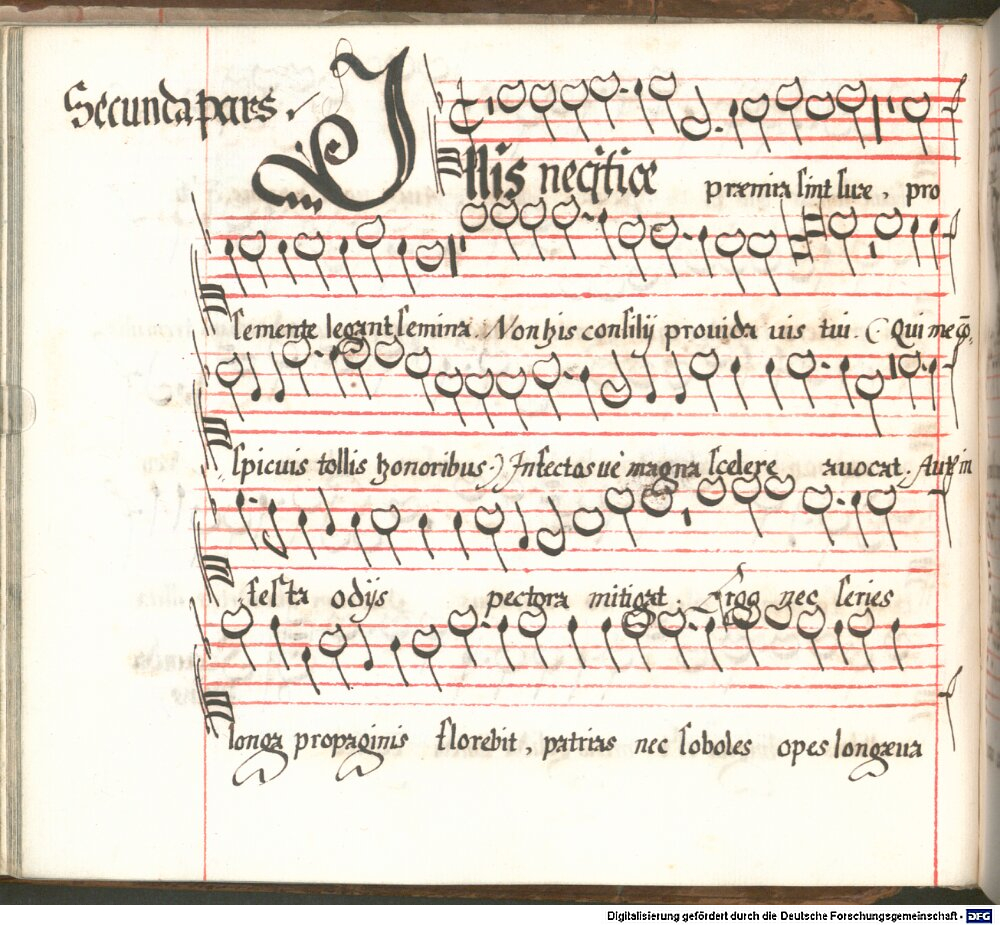 Secunda pars.
Illis neq̃tiæ præmia sint suæ, pro
semente legant semina. Non his consilij prouida uis tui. ( Qui me cõ,
spicuis tollis honoribus.) Infectos uè magna scelere auocat. Aut in
festa odijs pectora mitigat. Ergo nec series
longa propaginis florebit, patrias nec soboles opes longæua
Digitalisierung gefördert durch die Deutsche Forschungsgemeinschaft - DFG